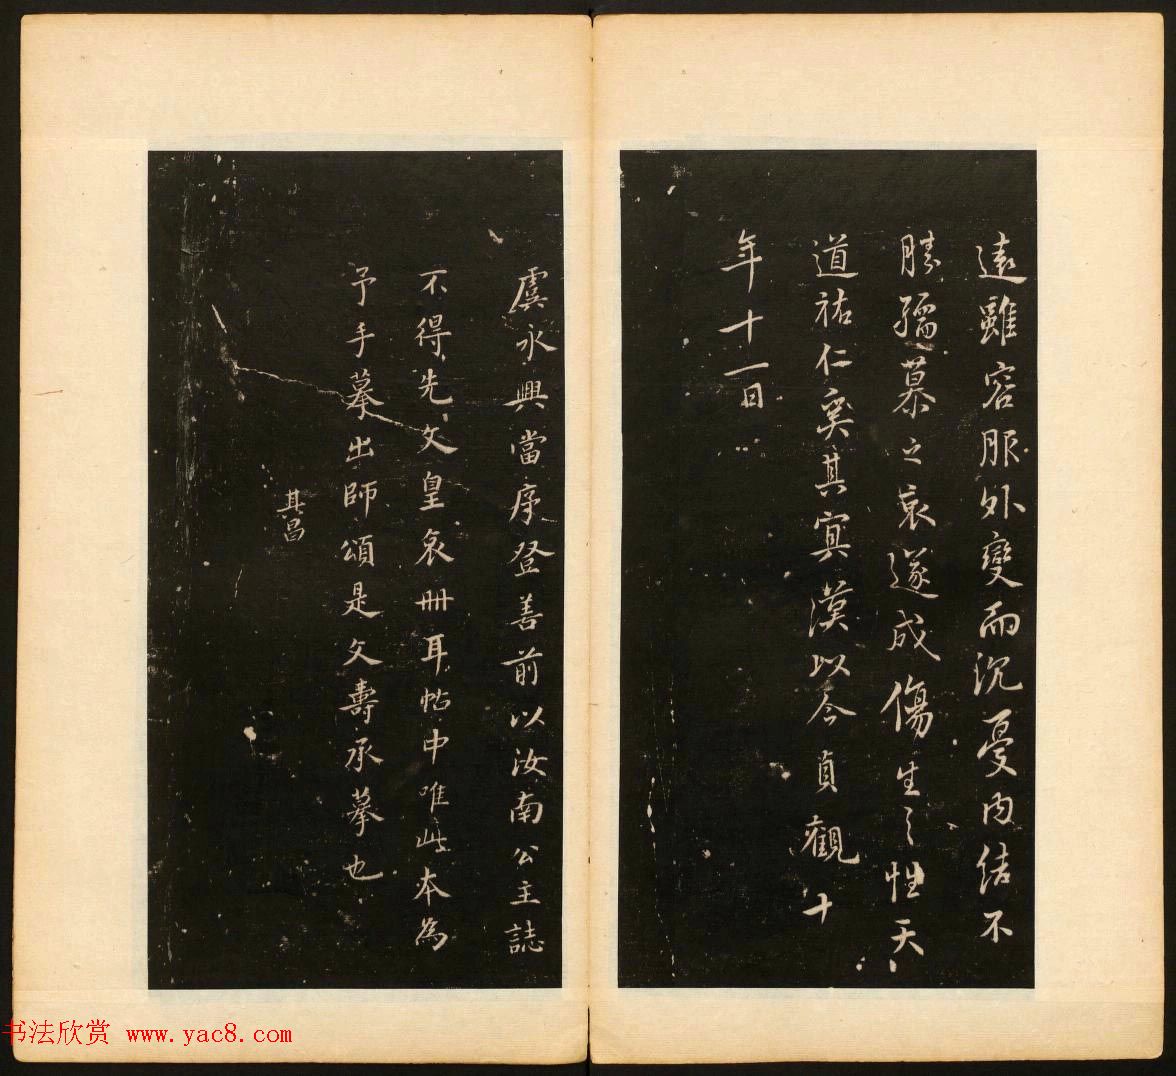 遠雖容服外變而沉憂內結不
勝孺慕之哀遂成傷生之性天
道祐仁奚其冥漠以今貞觀十
年十一日
虞永興當序登善前以汝南公主誌
不得先文皇哀冊耳帖中唯此本為
予手摹出師頌是文壽承摹也
其昌
书法欣赏 www.yac8.com